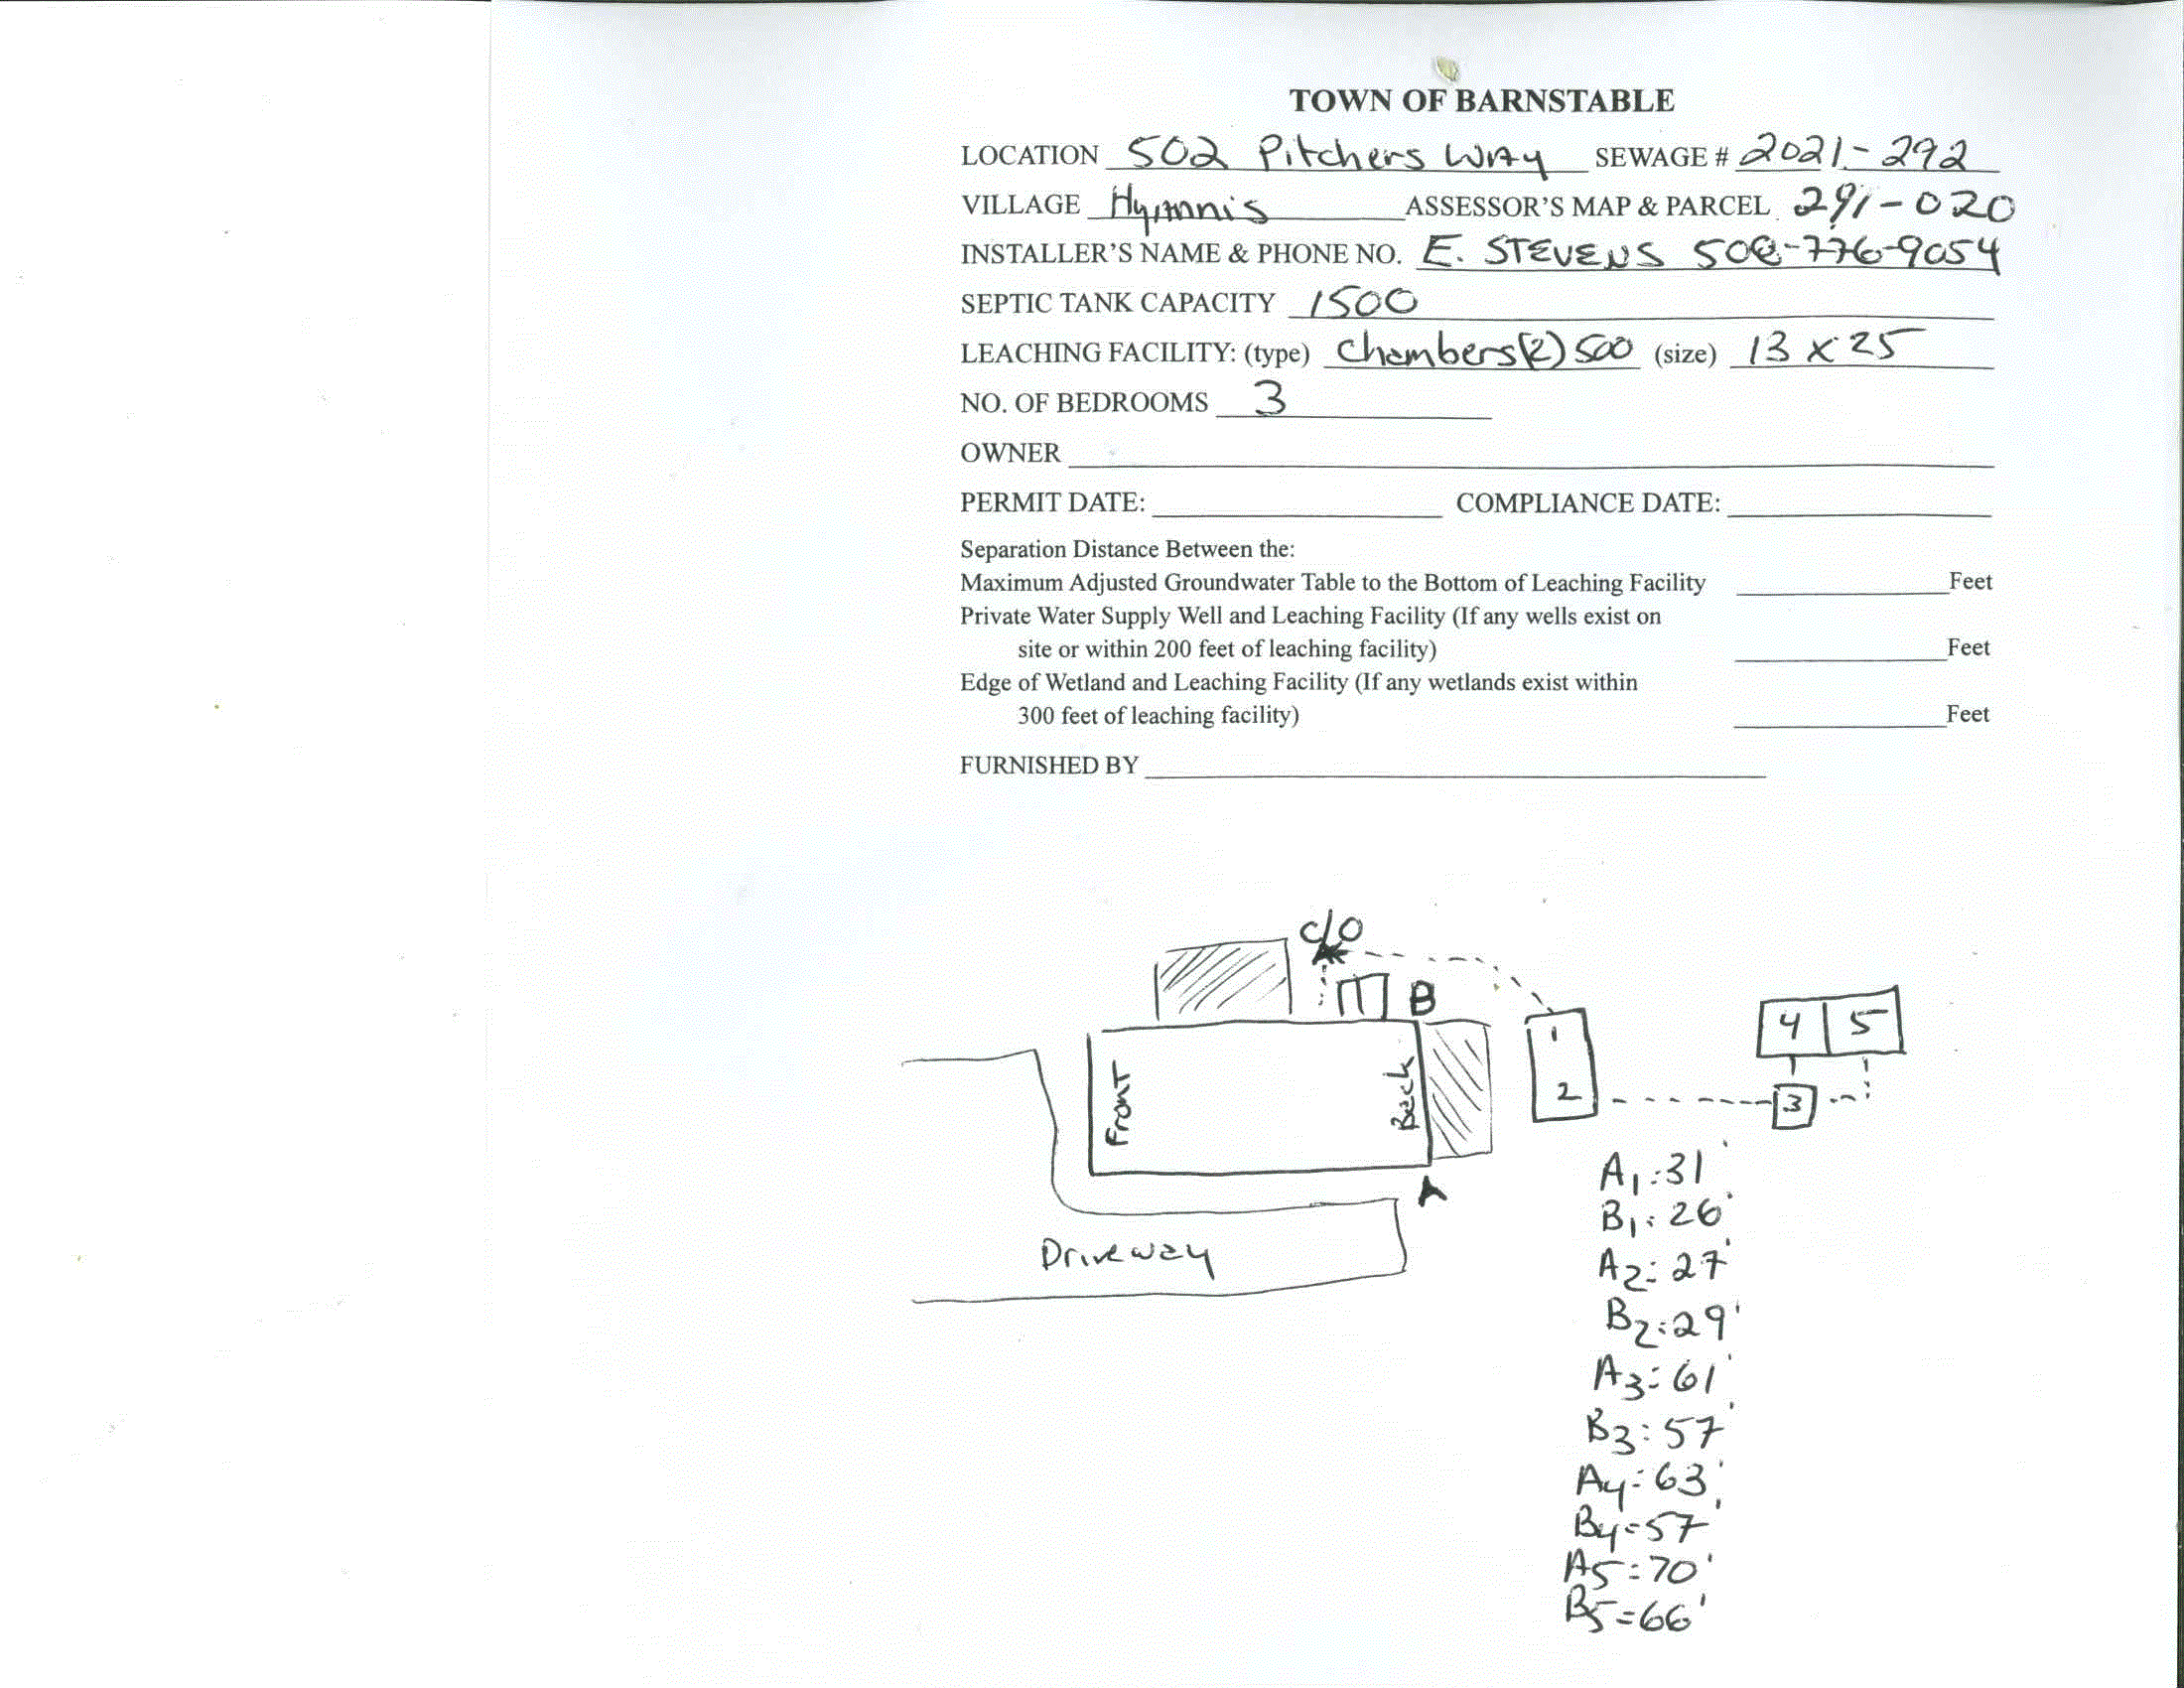 TOWN OF BARNSTABLE
LOCATION 502 Pitchers Way SEWAGE # 2021-292
VILLAGE Hyannis ASSESSOR'S MAP & PARCEL 291-020
INSTALLER'S NAME & PHONE NO. E. STEVENS 508-776-9054
SEPTIC TANK CAPACITY 1500
LEACHING FACILITY: (type) Chambers(2) 500 (size) 13 x 25
NO. OF BEDROOMS 3
OWNER
PERMIT DATE: COMPLIANCE DATE:
Separation Distance Between the:
Maximum Adjusted Groundwater Table to the Bottom of Leaching Facility Feet
Private Water Supply Well and Leaching Facility (If any wells exist on
site or within 200 feet of leaching facility) Feet
Edge of Wetland and Leaching Facility (If any wetlands exist within
300 feet of leaching facility) Feet
FURNISHED BY
c/o
B
1
4 5
Front
Back
2
3
A
Driveway
A1: 31'
B1: 26'
A2: 27'
B2: 29'
A3: 61'
B3: 57'
A4: 63'
B4= 57'
A5= 70'
B5= 66'